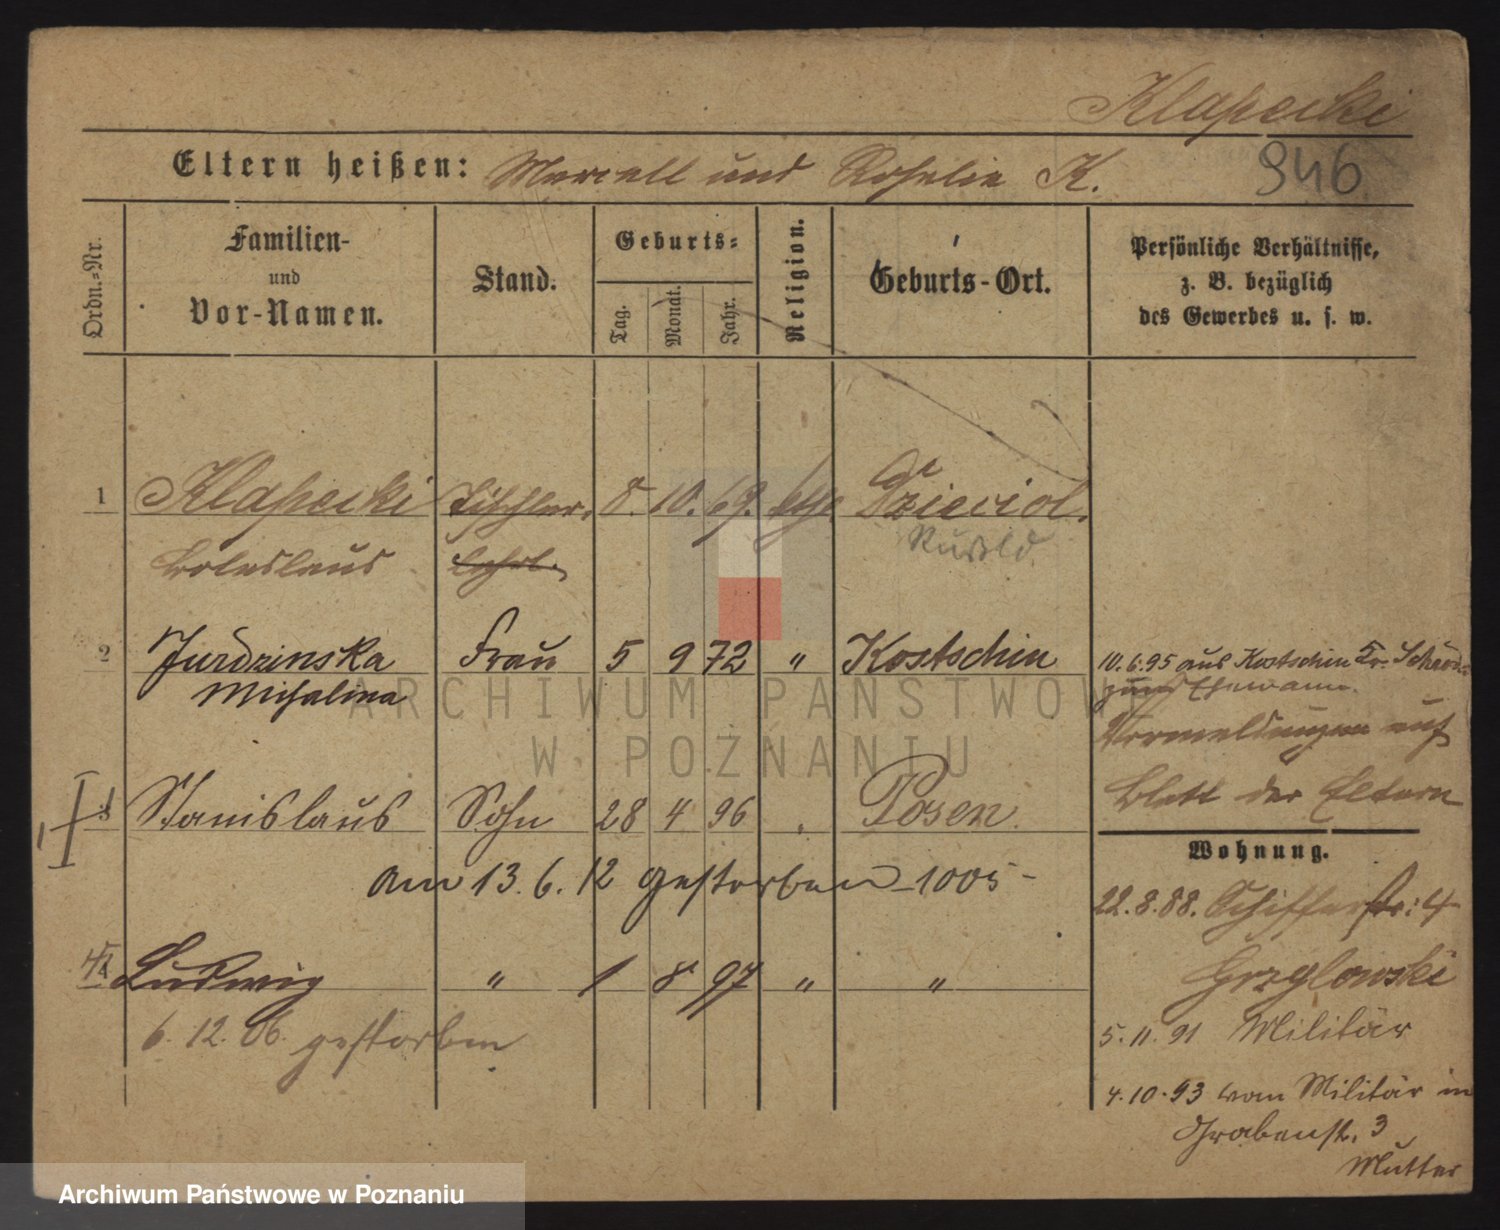 Klapecki
Eltern heißen: Marcell und Rosalie K. 946
Ordn.-Nr.
Familien-
und
Vor-Namen.
Stand.
Geburts-
Tag.
Monat.
Jahr.
Religion.
Geburts-Ort.
Persönliche Verhältnisse,
z. B. bezüglich
des Gewerbes u. s. w.
1 Klapecki Tischler. 8. 10. 69. kth. Dzieciol.
Boleslaus Lehrl. Rußld
2 Jurdzinska Frau 5 9 72 " Kostschin
Michalina
10.6.95 aus Kostschin Kr. Schroda
zum Ehemann.
Vormeldungen auf
Blatt der Eltern
3 Stanislaus Sohn 28 4 96 " Posen
am 13.6.12 gestorben -1005-
4 Ludwig " 1 8 97 " "
6.12.06. gestorben
Wohnung.
22.8.88. Schifferstr: 4
Grzglowski
5.11.91 Militär
4.10.93 vom Militär in
Grabenst. 3
Mutter
ARCHIWUM PAŃSTWOWE
W POZNANIU
Archiwum Państwowe w Poznaniu